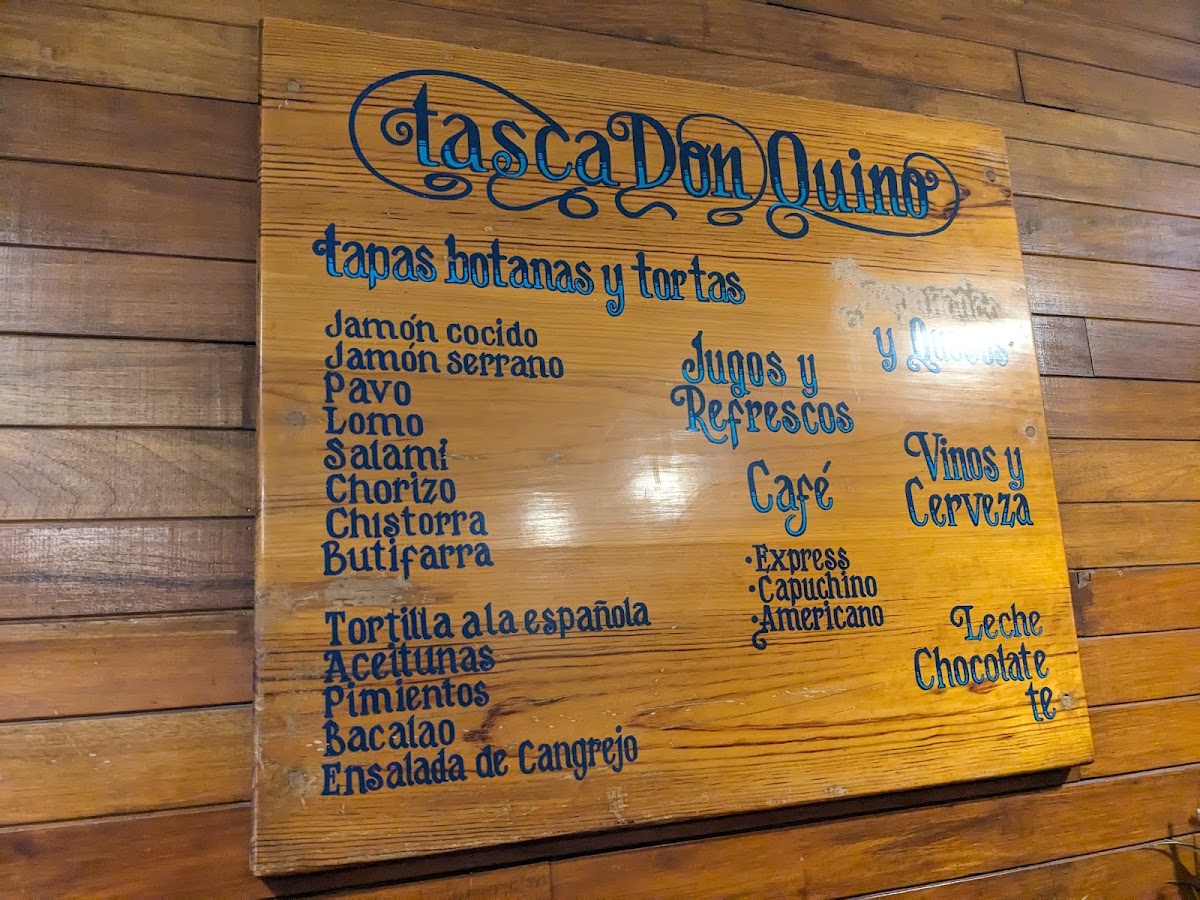 tasca Don Quino
tapas botanas y tortas
Jamón cocido
Jamón serrano
Pavo
Lomo
Salami
Chorizo
Chistorra
Butifarra
Tortilla a la española
Aceitunas
Pimientos
Bacalao
Ensalada de Cangrejo
Jugos y
Refrescos
Café
•Express
•Capuchino
•Americano
y Quesos
Vinos y
Cerveza
Leche
Chocolate
te